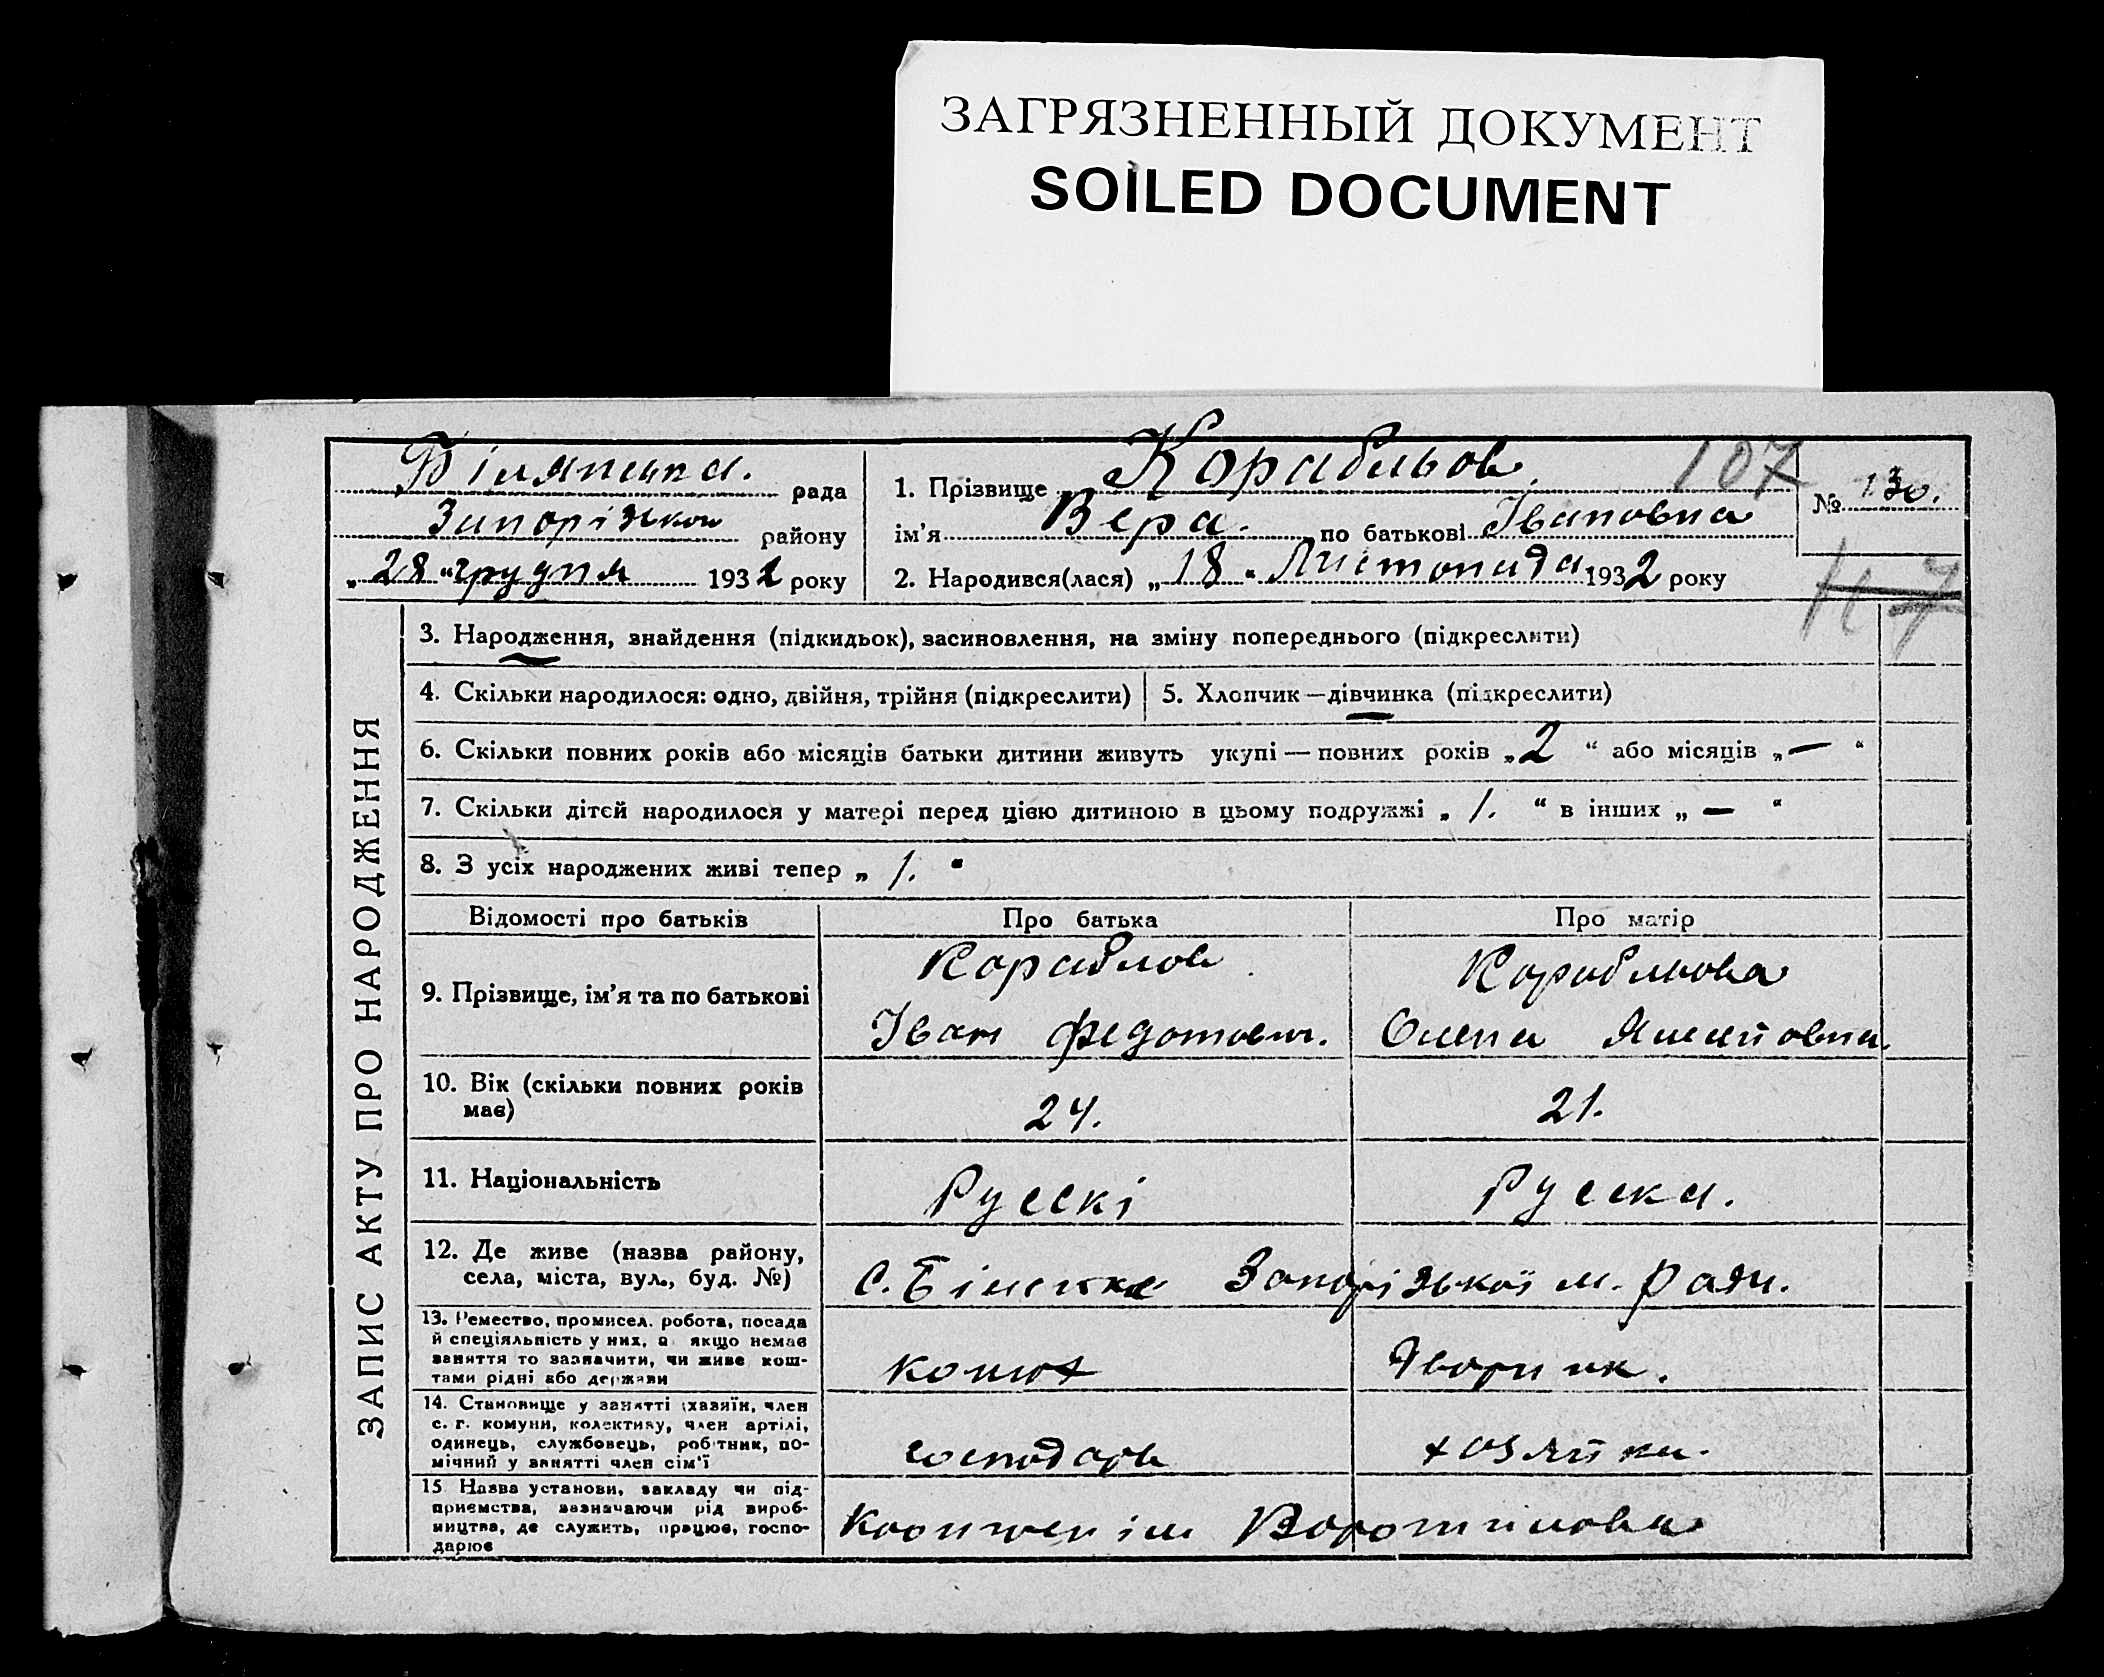 ЗАГРЯЗНЕННЫЙ ДОКУМЕНТ
SOILED DOCUMENT
Білянська. рада
Запорізькой району
„28“ грудня 1932 року
1. Прізвище Корабльов. 107
ім'я Вера. по батькові Івановна
№ 130.
2. Народився(лася) „18“ Листопада 1932 року
117
ЗАПИС АКТУ ПРО НАРОДЖЕННЯ
3. Народження, знайдення (підкидьок), засиновлення, на зміну попереднього (підкреслити)
4. Скільки народилося: одно, двійня, трійня (підкреслити)
5. Хлопчик — дівчинка (підкреслити)
6. Скільки повних років або місяців батьки дитини живуть укупі — повних років „2“ або місяців „—“
7. Скільки дітей народилося у матері перед цією дитиною в цьому подружжі „1.“ в інших „—“
8. З усіх народжених живі тепер „1.“
Відомості про батьків Про батька Про матір
9. Прізвище, ім'я та по батькові
Кораблов
Іван Федотович.
Корабльова
Олена
10. Вік (скільки повних років
має)
24. 21.
11. Національність Рускі Руска.
12. Де живе (назва району,
села, міста, вул., буд. №)
с. Біленьке Запорізької м. Ради.
13. Ремество, промисел, робота, посада
й спеціяльність у них, а якщо немає
заняття то зазначити, чи живе кош-
тами рідні або держави
конюх Двориик.
14. Становище у занятті (хазяїн, член
с. г. комуни, колективу, член артілі,
одинець, службовець, робітник, по-
мічний у занятті член сім'ї
господарь хозяйка.
15. Назва установи, закладу чи під-
приємства, зазначаючи рід вироб-
ництва, де служить, працює, госпо-
дарює
ім Ворошилова